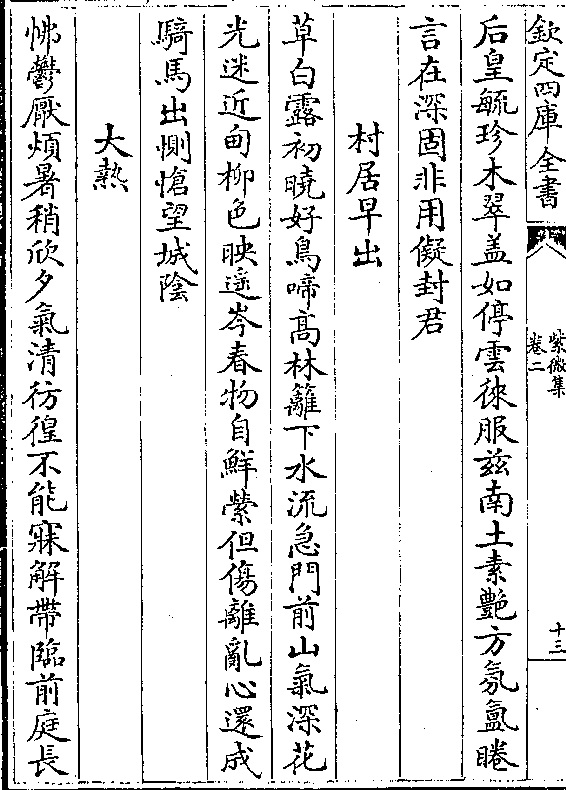 欽定四庫全書
紫微集
卷二
十三
后皇毓珍木翠盖如停雲徠服兹南土素艷方氛氲睠
言在深固非用儗封君
村居早出
草白露初曉好鳥啼高林籬下水流急門前山氣深花
光迷近甸柳色映遥岑春物自鮮縈但傷離亂心還成
騎馬出惻愴望城陰
大熱
怫鬱厭煩暑稍欣夕氣清彷徨不能寐解帶臨前庭長